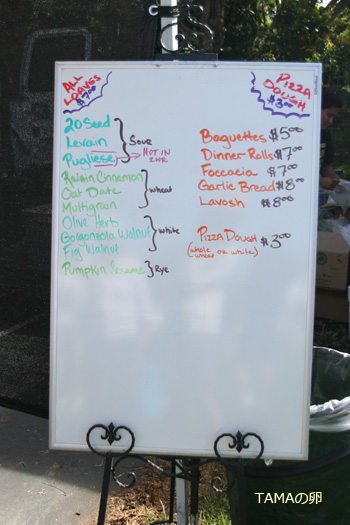 ALL
LOAVES
$7.00
PIZZA
DOUGH
$3.00
20 Seed
Levain
Pugliese
Sour
HOT IN
Raisin Cinnamon
Oat Date
Multigrain
wheat
Olive Herb
Gorgonzola Walnut
Fig Walnut
white
Pumpkin Sesame
Rye
Baguettes $5.00
Dinner Rolls $7.00
Foccacia $7.00
Garlic Bread $8.00
Lavosh $8.00
PIZZA DOUGH $3.00
(whole wheat or white)
TAMAの卵